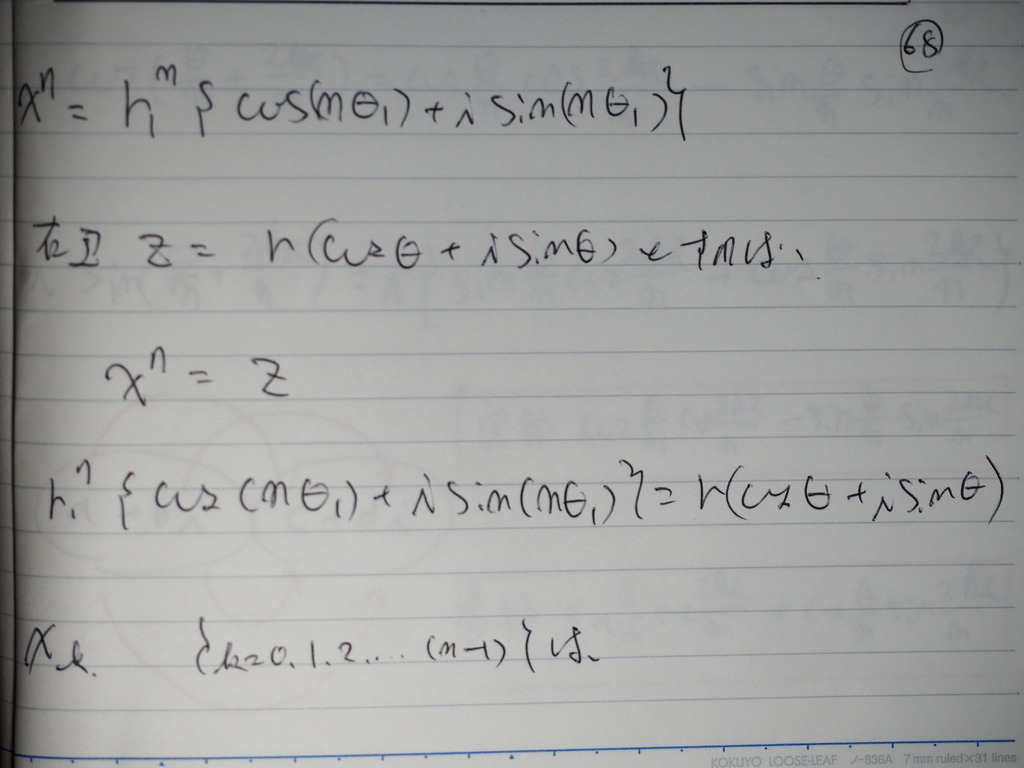 68
xⁿ = r₁ⁿ { cos(nθ₁) + i sin(nθ₁) }
右辺 z = r(cosθ + i sinθ) とすれば、
xⁿ = z
r₁ⁿ { cos(nθ₁) + i sin(nθ₁) } = r(cosθ + i sinθ)
xₖ {k=0.1.2.... (n-1)} は、
KOKUYO LOOSE-LEAF ノ-836A 7 mm ruled×31 lines